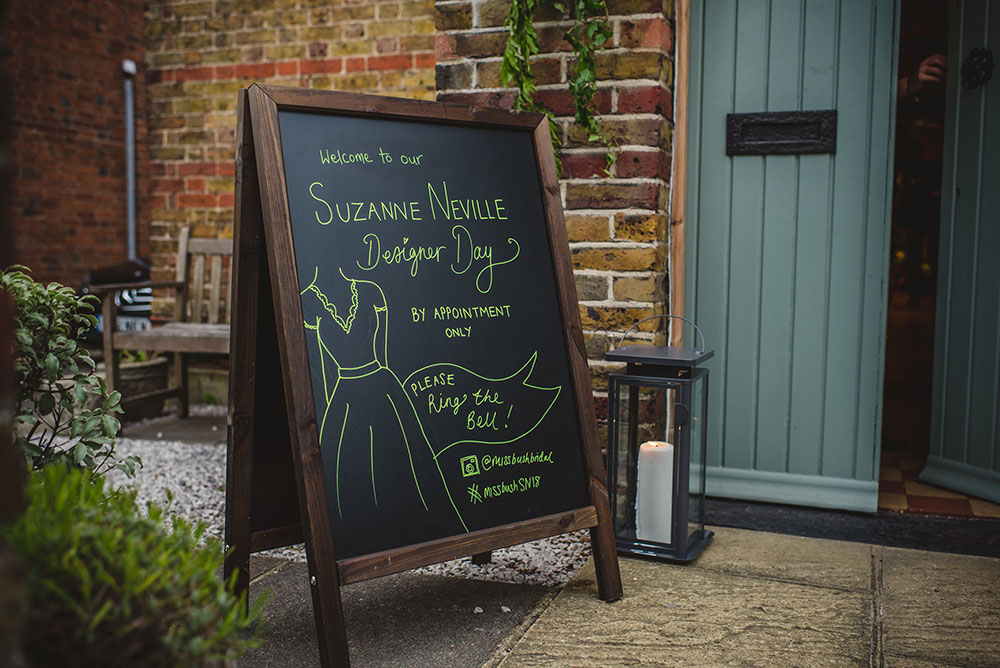 Welcome to our
SUZANNE NEVILLE
Designer Day
BY APPOINTMENT
ONLY
PLEASE
Ring the
Bell!
@missbushbridal
#missbushSN18